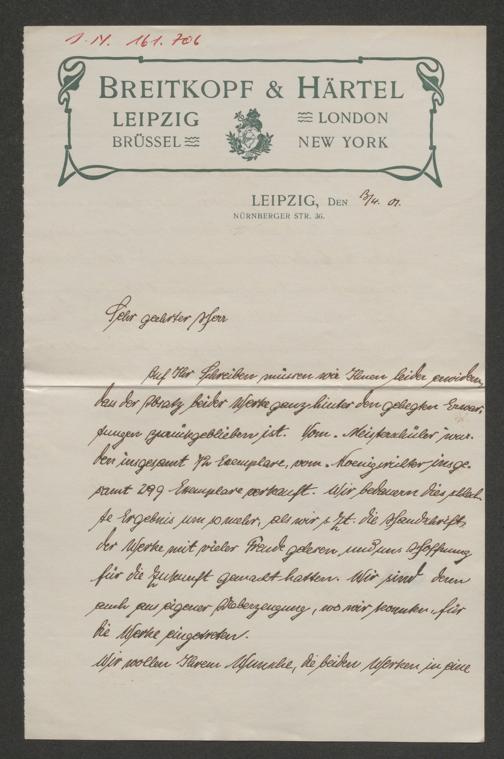 I.N. 161.706
BREITKOPF & HÄRTEL
LEIPZIG LONDON
BRÜSSEL NEW YORK
LEIPZIG, DEN 13/4. 01.
NÜRNBERGER STR. 36.
Sehr geehrter Herr
Auf Ihr Schreiben müssen wir Ihnen leider erwidern,
das der Absatz beider Werke ganz hinter den gelegten Erwar-
tungen zurückgeblieben ist. Vom "Meisterschüler" wur-
den insgesamt Exemplare, vom "Koenigsrichter insge-
samt 299 Exemplare verkauft. Wir bedauern dies schlech-
te Ergebnis um so mehr, als wir s. Zt. die Handschrift
der Werke mit vieler Freude gelesen und uns Hoffnung
für die Zukunft gemacht hatten. Wir sind denn
auch aus eigener Ueberzeugung, wo wir konnten, für
die Werke eingetreten.
Wir wollen Ihrem Wunsche, die beiden Werken in eine